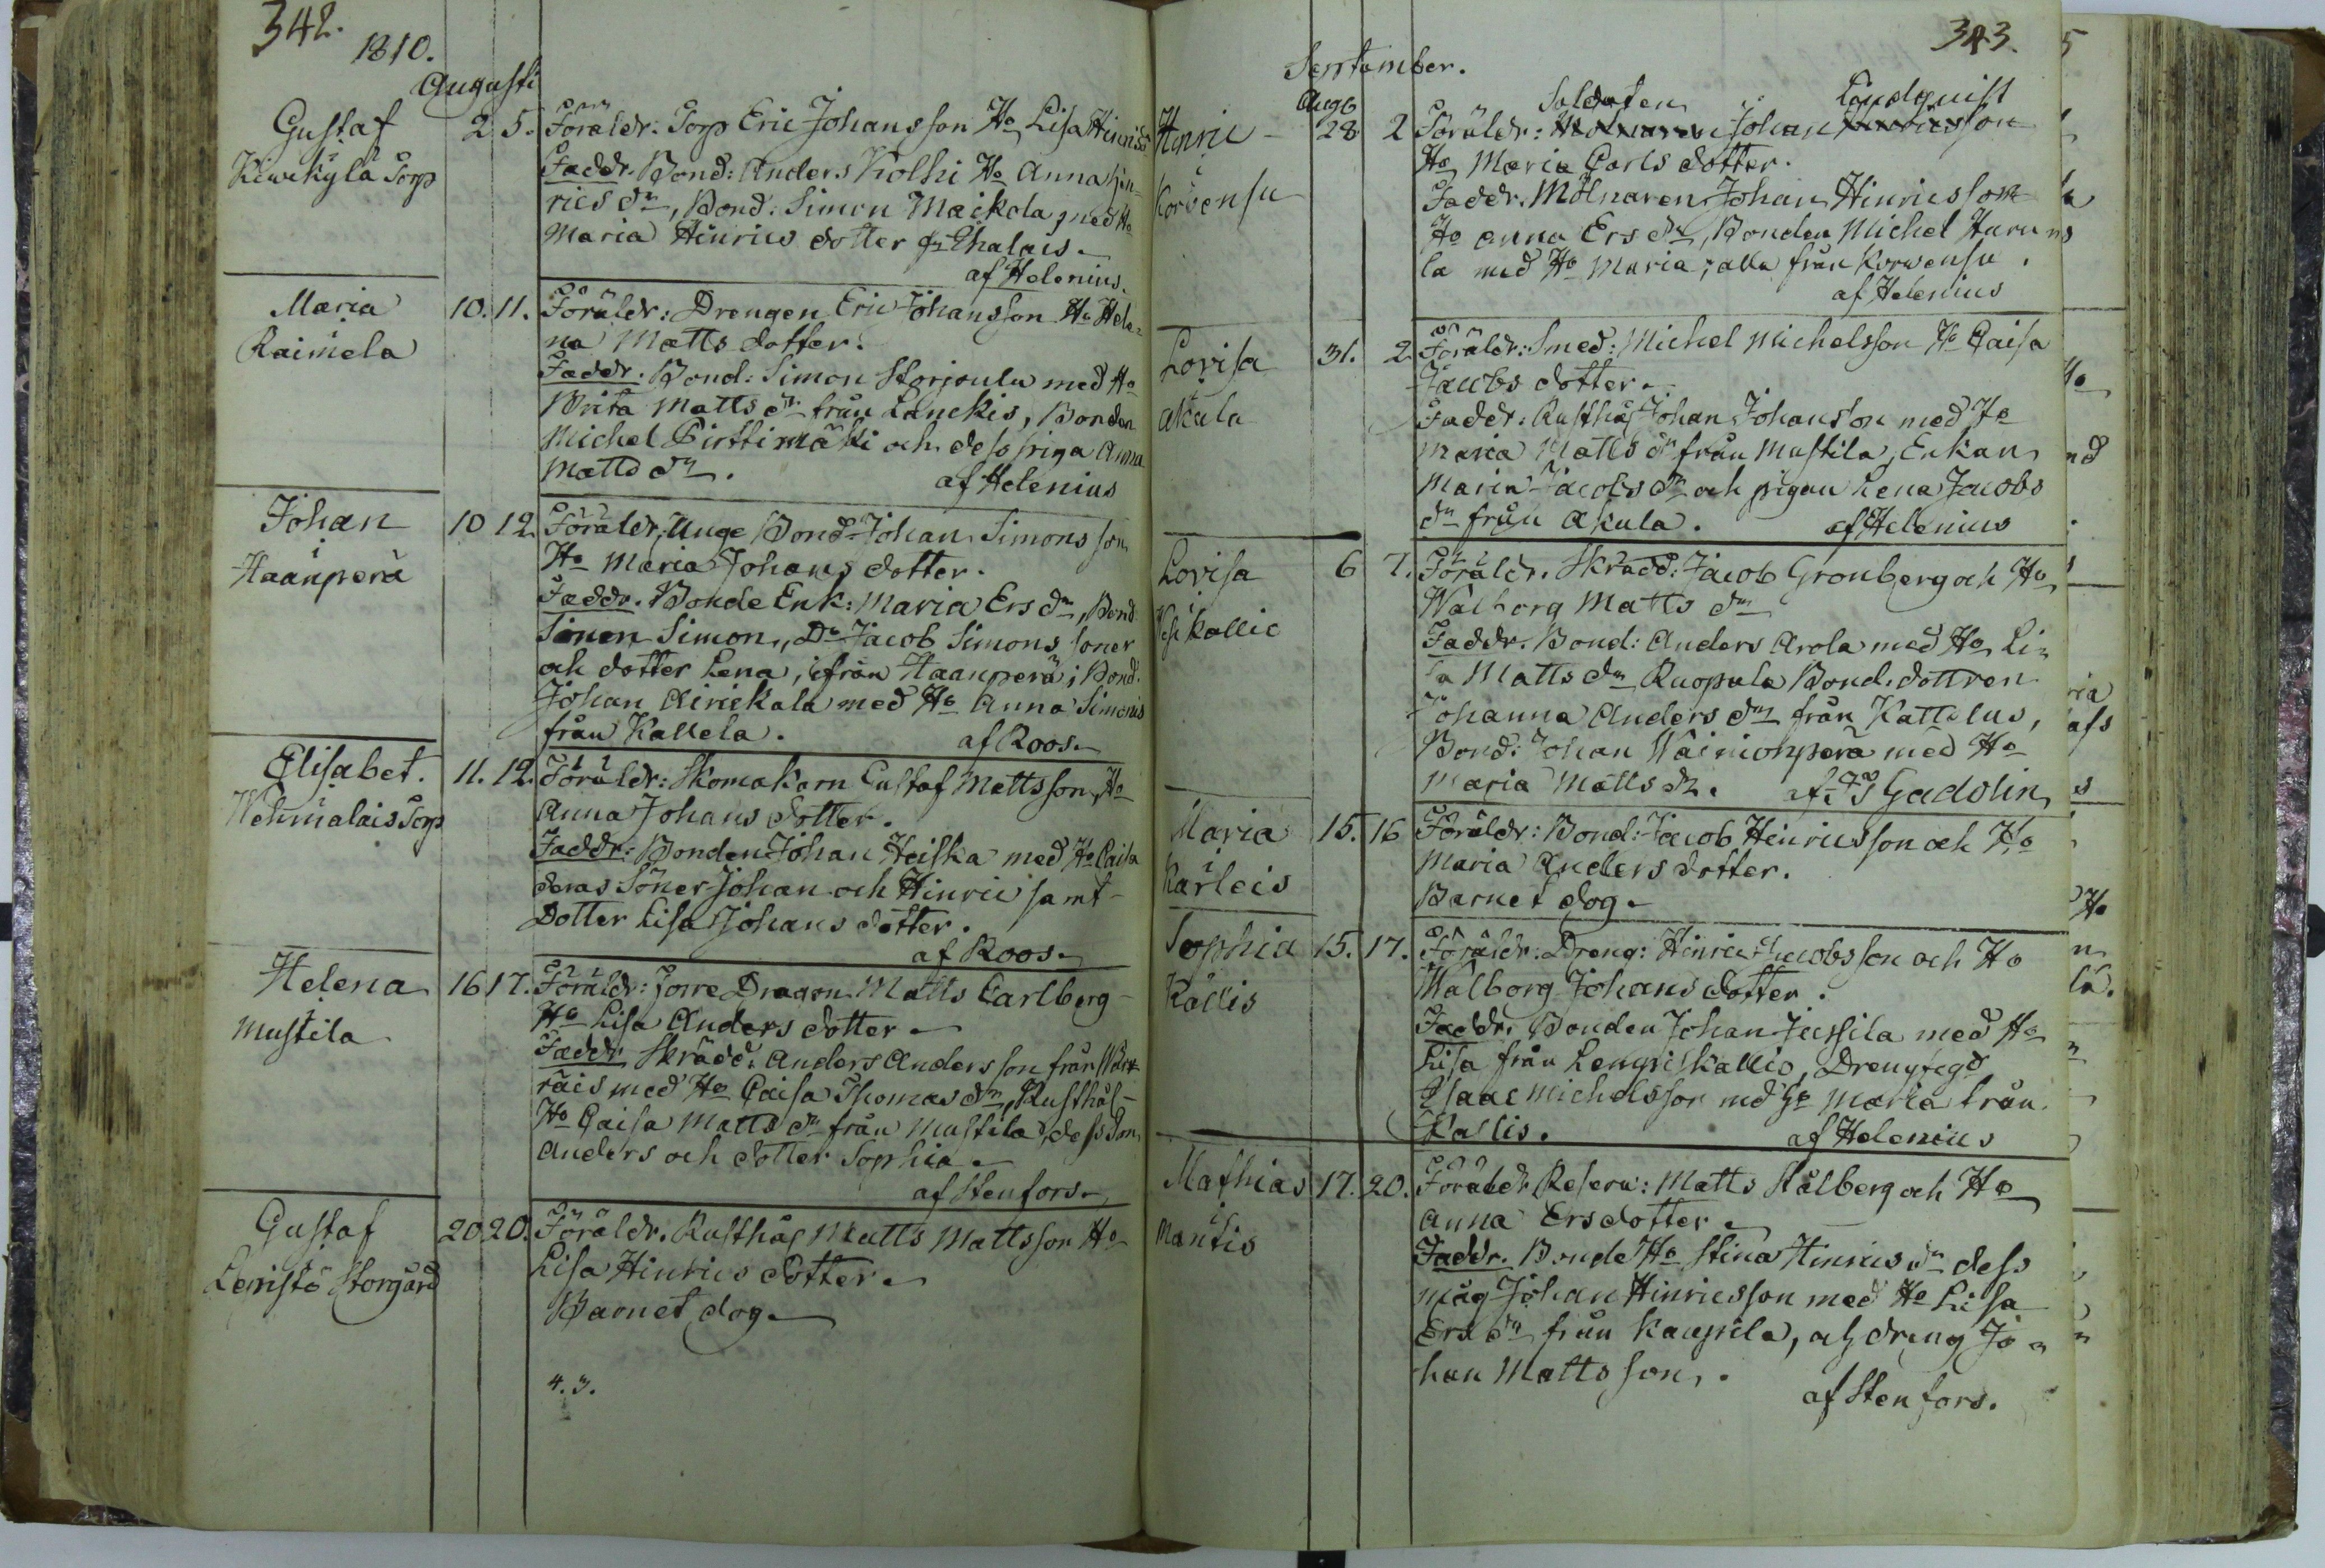 342.
1810.
Augusti
Gustaf
Kiwikylä Torp
2 5. Föräldr. Torp Eric Johansson Ho Lisa Hinricsd
Faddr. Bond: Anders Kolhi Ho Anna Hin-
rics dr, Bond: Simon Maickola med Ho
Maria Hinrics dotter fr Ehalais.
af Helenius.
Maria
Raimela
10. 11. Föräldr: Drengen Eric Johansson Ho Hele-
na Matts dotter.
Faddr. Bond: Simon Storjoulu med Ho
Brita Matts dr från Lanckis, Bonden
Michel Pirttimäki och dess piga Anna
Matts dr.
af Helenius
Johan
Haanperä
10 12. Föräldr. Unge Bond Johan Simons son
Ho Maria Johans dotter.
Faddr. Bonde Enk: Maria Ers dr, Bond
Simon Simon, Do Jacob Simons söner
och dotter Lena, ifrån Haanperä; Bond.
Johan Airickala med Ho Anna Simons
från Kallela.
af Roos.
Elisabet.
Wehmalais Torp
11. 12. Föräldr: Skomakarn Gustaf Mattsson, Ho
Anna Johans dotter.
Faddr: Bonden Johan Heiska med Ho Caisa
deras Söner Johan och Hinric samt
Dotter Lisa Johans dotter.
af Roos.
Helena
Mustila
16 17. Föräldr: forre Dragon Matts Carlberg
Ho Lisa Anders dotter.
Faddr Skrädd: Anders Andersson från
räis med Ho Caisa Thomas dr, Rusthål-
Ho Caisa Matts dr från Mustila, dess Son
Anders och dotter Sophia.
af Stenfors.
Gustaf
Leristö Storgård
20 20. Föräldr. Rusthåg Matts Mattsson Ho
Lisa Hinrics dotter.
Barnet dog.
4. 3.
343.
September.
Aug
Henric
Korvensu
28 2 Föräldr: Soldaten Johan Lindquist
Ho Maria Carls dotter.
Faddr. Mölnaren Johan Hinricsson
Ho Anna Ers dr, Bonden Michel Huru
la med Ho Maria, alla från Korwensu.
af Helenius
Lovisa
Akula
31. 2. Föräldr: Smed: Michel Michelsson Ho Caisa
Jacobs dotter.
Faddr. Rusthåg Johan Johansson med Ho
Maria Matts dr från Mustila, Enkan
Maria Jacobs dr och pigan Lena Jacobs
dr från Akula.
af Helenius
Lovisa
Kallio
6 7. Föräldr. Skrädd: Jacob Gronberg och Ho
Walborg Matts dr
Faddr. Bond: Anders Arola med Ho Li-
sa Matts dr Ruopula Bond. dottren
Johanna Anders dr från Kattelus,
Bond: Johan Wäinionperä med Ho
Maria Matts dr.
af Gadolin
Maria
Kärleis
15. 16 Föräldr: Bond: Jacob Hinricsson och Ho
Maria Anders dotter.
Barnet dog.
Sophia
Kallis
15. 17. Föräldr: Dreng: Hinric Jacobsson och Ho
Walborg Johans dotter.
Faddr. Bonden Johan Jussila med Ho
Lisa från Lempiskallio, Drengfogd
Isaac Michelsson md Ho Maria från
Kallis.
af Helenius
Mathias
Mantis
17. 20. Föräldr Reserv: Matts Stålberg och Ho
Anna Ersdotter.
Faddr. Bonde Ho Stina Hinrics dr dess
måg Johan Hinricsson med Ho Lisa
Ers dr från Kaupila, och dreng Jo-
han Mattsson.
af Stenfors.